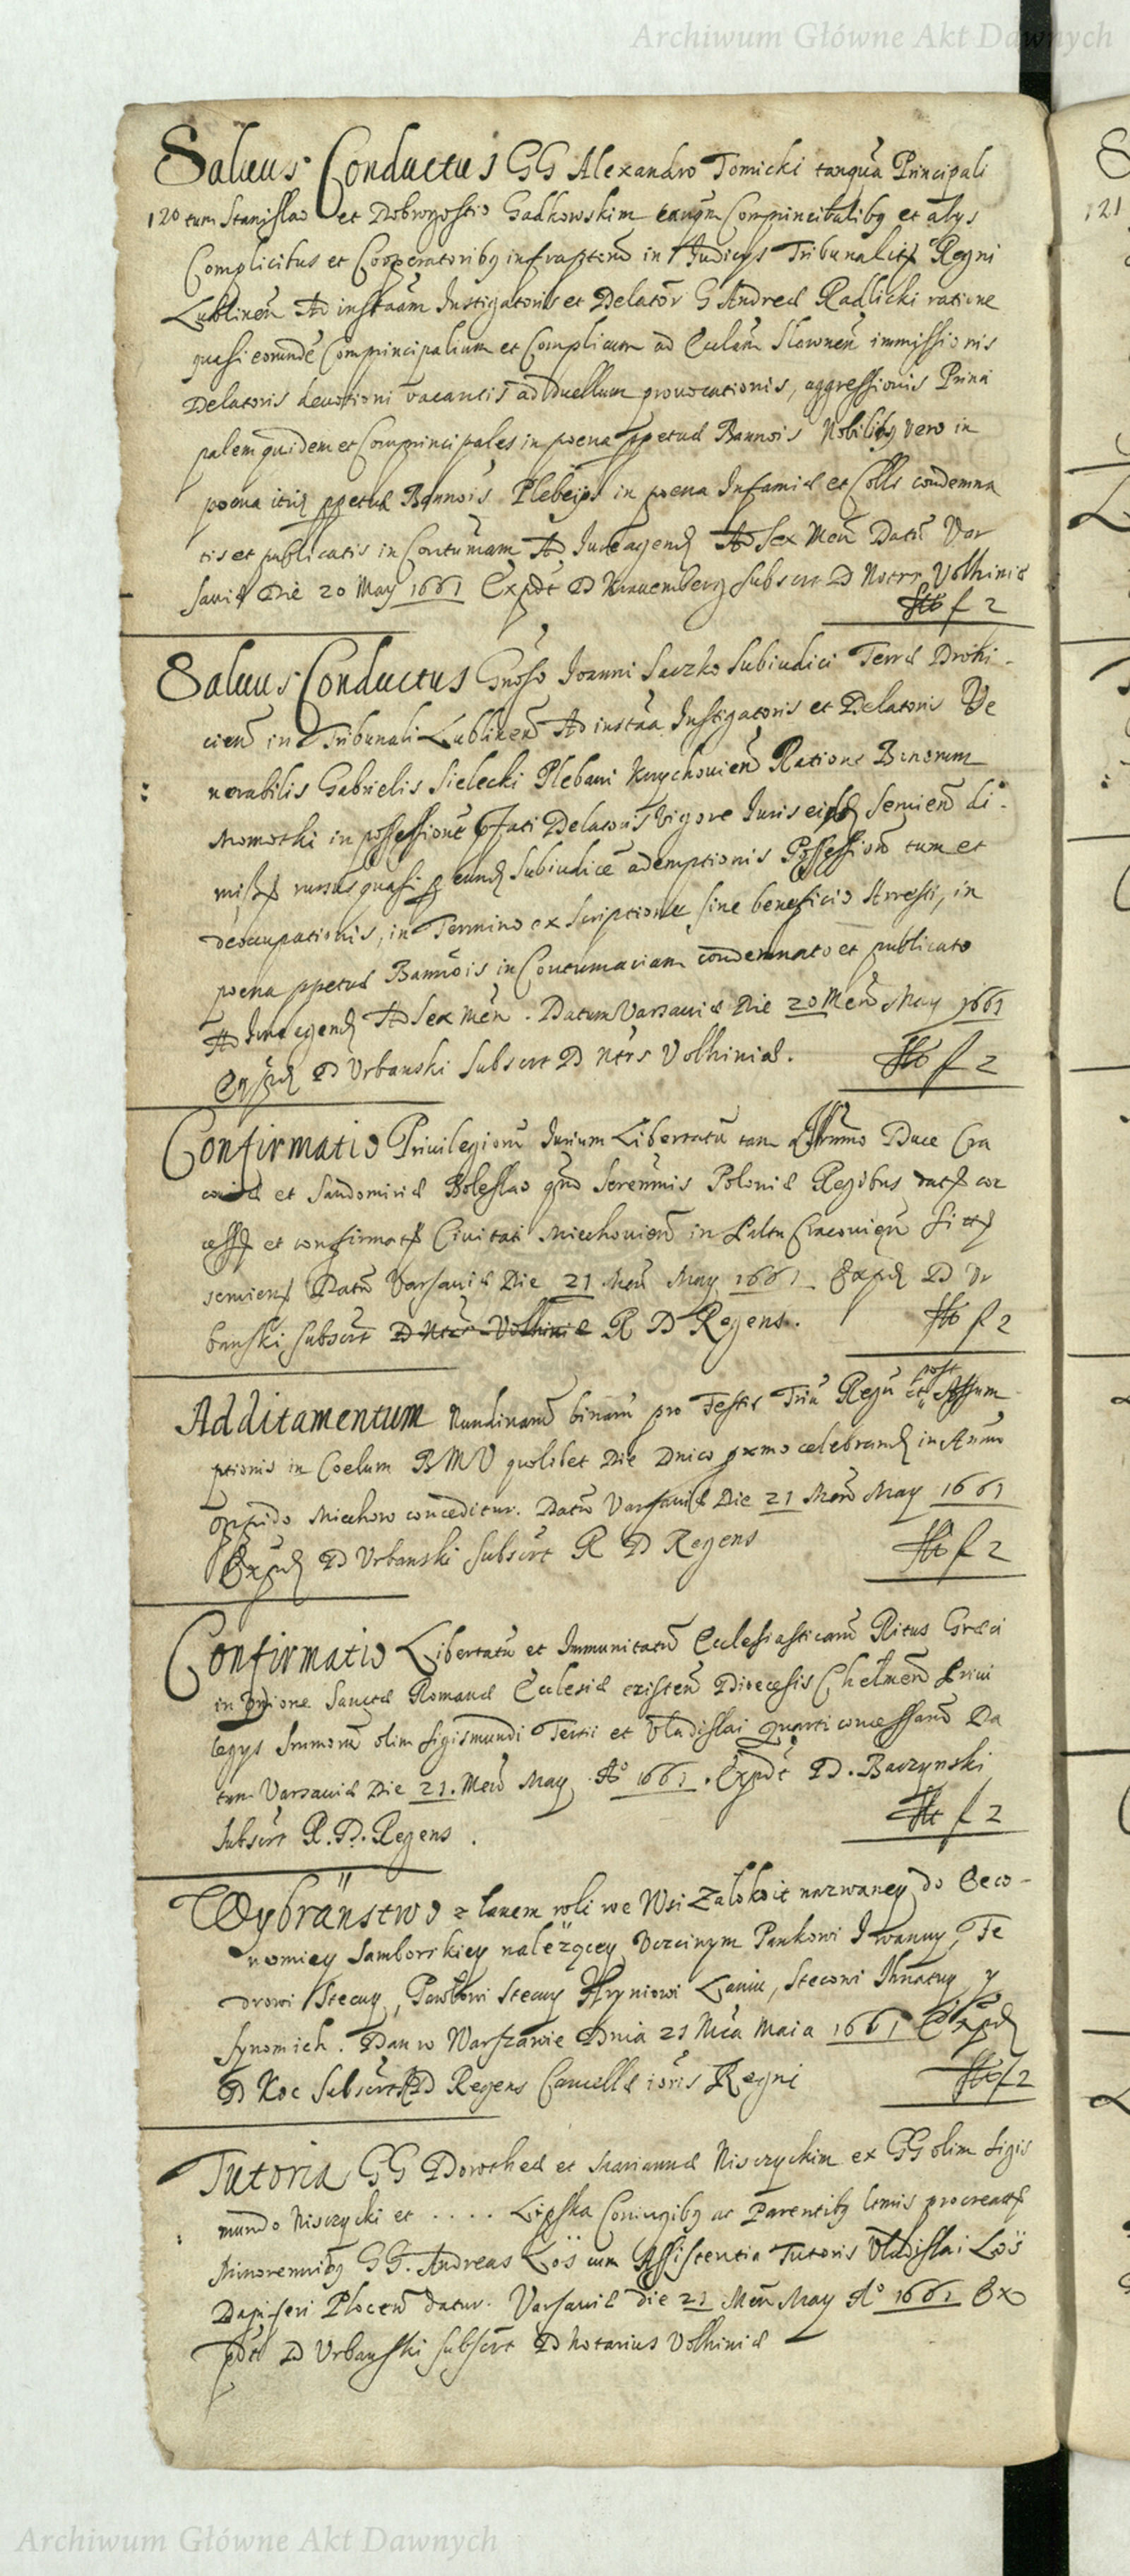 Archiwum Główne Akt Dawnych
Saluus Conductus GG Alexandro Tomicki tanquã Principali
120 tum Stanislao et Dobrogostio Gadkowskim tanqm Comprincipalibq et alys
Complicibus et Cooperatoribq infrascptend in Iudicys Tribunalits Regni
Lublinen Ad instaãm Instigatoris et Delator G Andreæ Radlicki ratione
quasi eorundẽ Comprincipalium et Complicum ad Eccleãm Slownen immissionis
Delatoris devotioni vacantis ad Duellum provocationis, aggressionis Prĩnci
palem quidem et Comprincipales in poena ppetuæ Bannois Nobilibq vero in
poena itid ppetuæ Bannois Plebeios in poena Infamiæ et Colli condemna
tis et publicatis in Contumãm Ad Iure agend Ad Sex Men Datũ Var
saviæ Die 20 May 1661 Expdt D Kruuemberg Subscrt D Notrs Volhiniæ
f 2
Saluus Conductus Gnoso Ioanni Saczko Subiudici Terræ Drohi-
cien in Tribunali Lublinen Ad instãa Instigatoris et Delatoris Ve
nerabilis Gabrielis Sielecki Plebani Krzychouien Ratione Bonorum
Momotki in possessione pfati Delatoris Vigore Iuris eid Servien di-
miss rursus quasi p eund Subiudicẽ ademptionis Possession tum et
deoccupationis, in Termino ex Scriptione sine beneficio Arresti, in
poena ppetuæ Bannois in Contumaciam condemnato et publicato
Ad Iure agend Ad Sex Men. Datum Varsaviæ Die 20 Men May 1661
Expd D Urbanski Subscrt D Ntrs Volhiniæ.
f 2
Confirmatio Privilegiorũ Iurium Libertatũ tam Illrmo Duce Cra
coviæ et Sandomiriæ Boleslao qm Serenmis Poloniæ Regibus dat con
cess et confirmat Civitati Miechovien in Paltu Cracovien sitt
servien Datũ Varsaviæ Die 21 Men May 1661 Expd D Ur
banski Subscrt D Ntrs Volhiniæ R D Regens.
f 2
Additamentum Nundinarũ binarũ pro Festis Triũ Regũ et post Assum
ptionis in Coelum BMV quolibet Die Dnico pxmo celebrand in Annuo
Oppido Miechow conceditur. Datũ Varsaviæ Die 21 Men May 1661
Expd D Urbanski Subscrt R D Regens
f 2
Confirmatio Libertatũ et Immunitatũ Ecclesiasticarũ Ritus Græci
in Unione Sanctæ Romanæ Ecclesiæ existen Dioecesis Chelmen Privi
legys Srmmorũ olim Sigismundi Tertii et Vladislai Quarti concessarũ Da
tum Varsaviæ Die 21. Men May Aº 1661. Expdt D. Baczynski
Subscrt R. D. Regens.
f 2
Wybräństwo z łanem roli we Wsi Załokcit nazwaney do Oeco-
nomiey Samborskiey należącey Uczciwym Pankowi Iwanuy, Fe
drowi Stecuy, Pawłowi Stecuy Hryniowi Laniu, Steconi Ihnatuy, y
synom ich. Dan w Warszawie Dnia 21 Mca Maia 1661 Expd
D Koc Subscrt R D Regens Cancellæ ioris Regni
f 2
Tutoria GG Dorotheæ et Mariannæ Nisczyckim ex GG olim Sigis
mundo Nisczycki et .... Lipska Coniugibq ac Parentibq ltmis procreatis
Minorennibq GG. Andreas Loś cum Assistentia Tutoris Vladislai Loś
Dapiferi Plocen datur. Varsaviæ die 21 Men May Aº 1661 Ex
pdt D Urbanski subscrt D Notarius Volhiniæ
Archiwum Główne Akt Dawnych